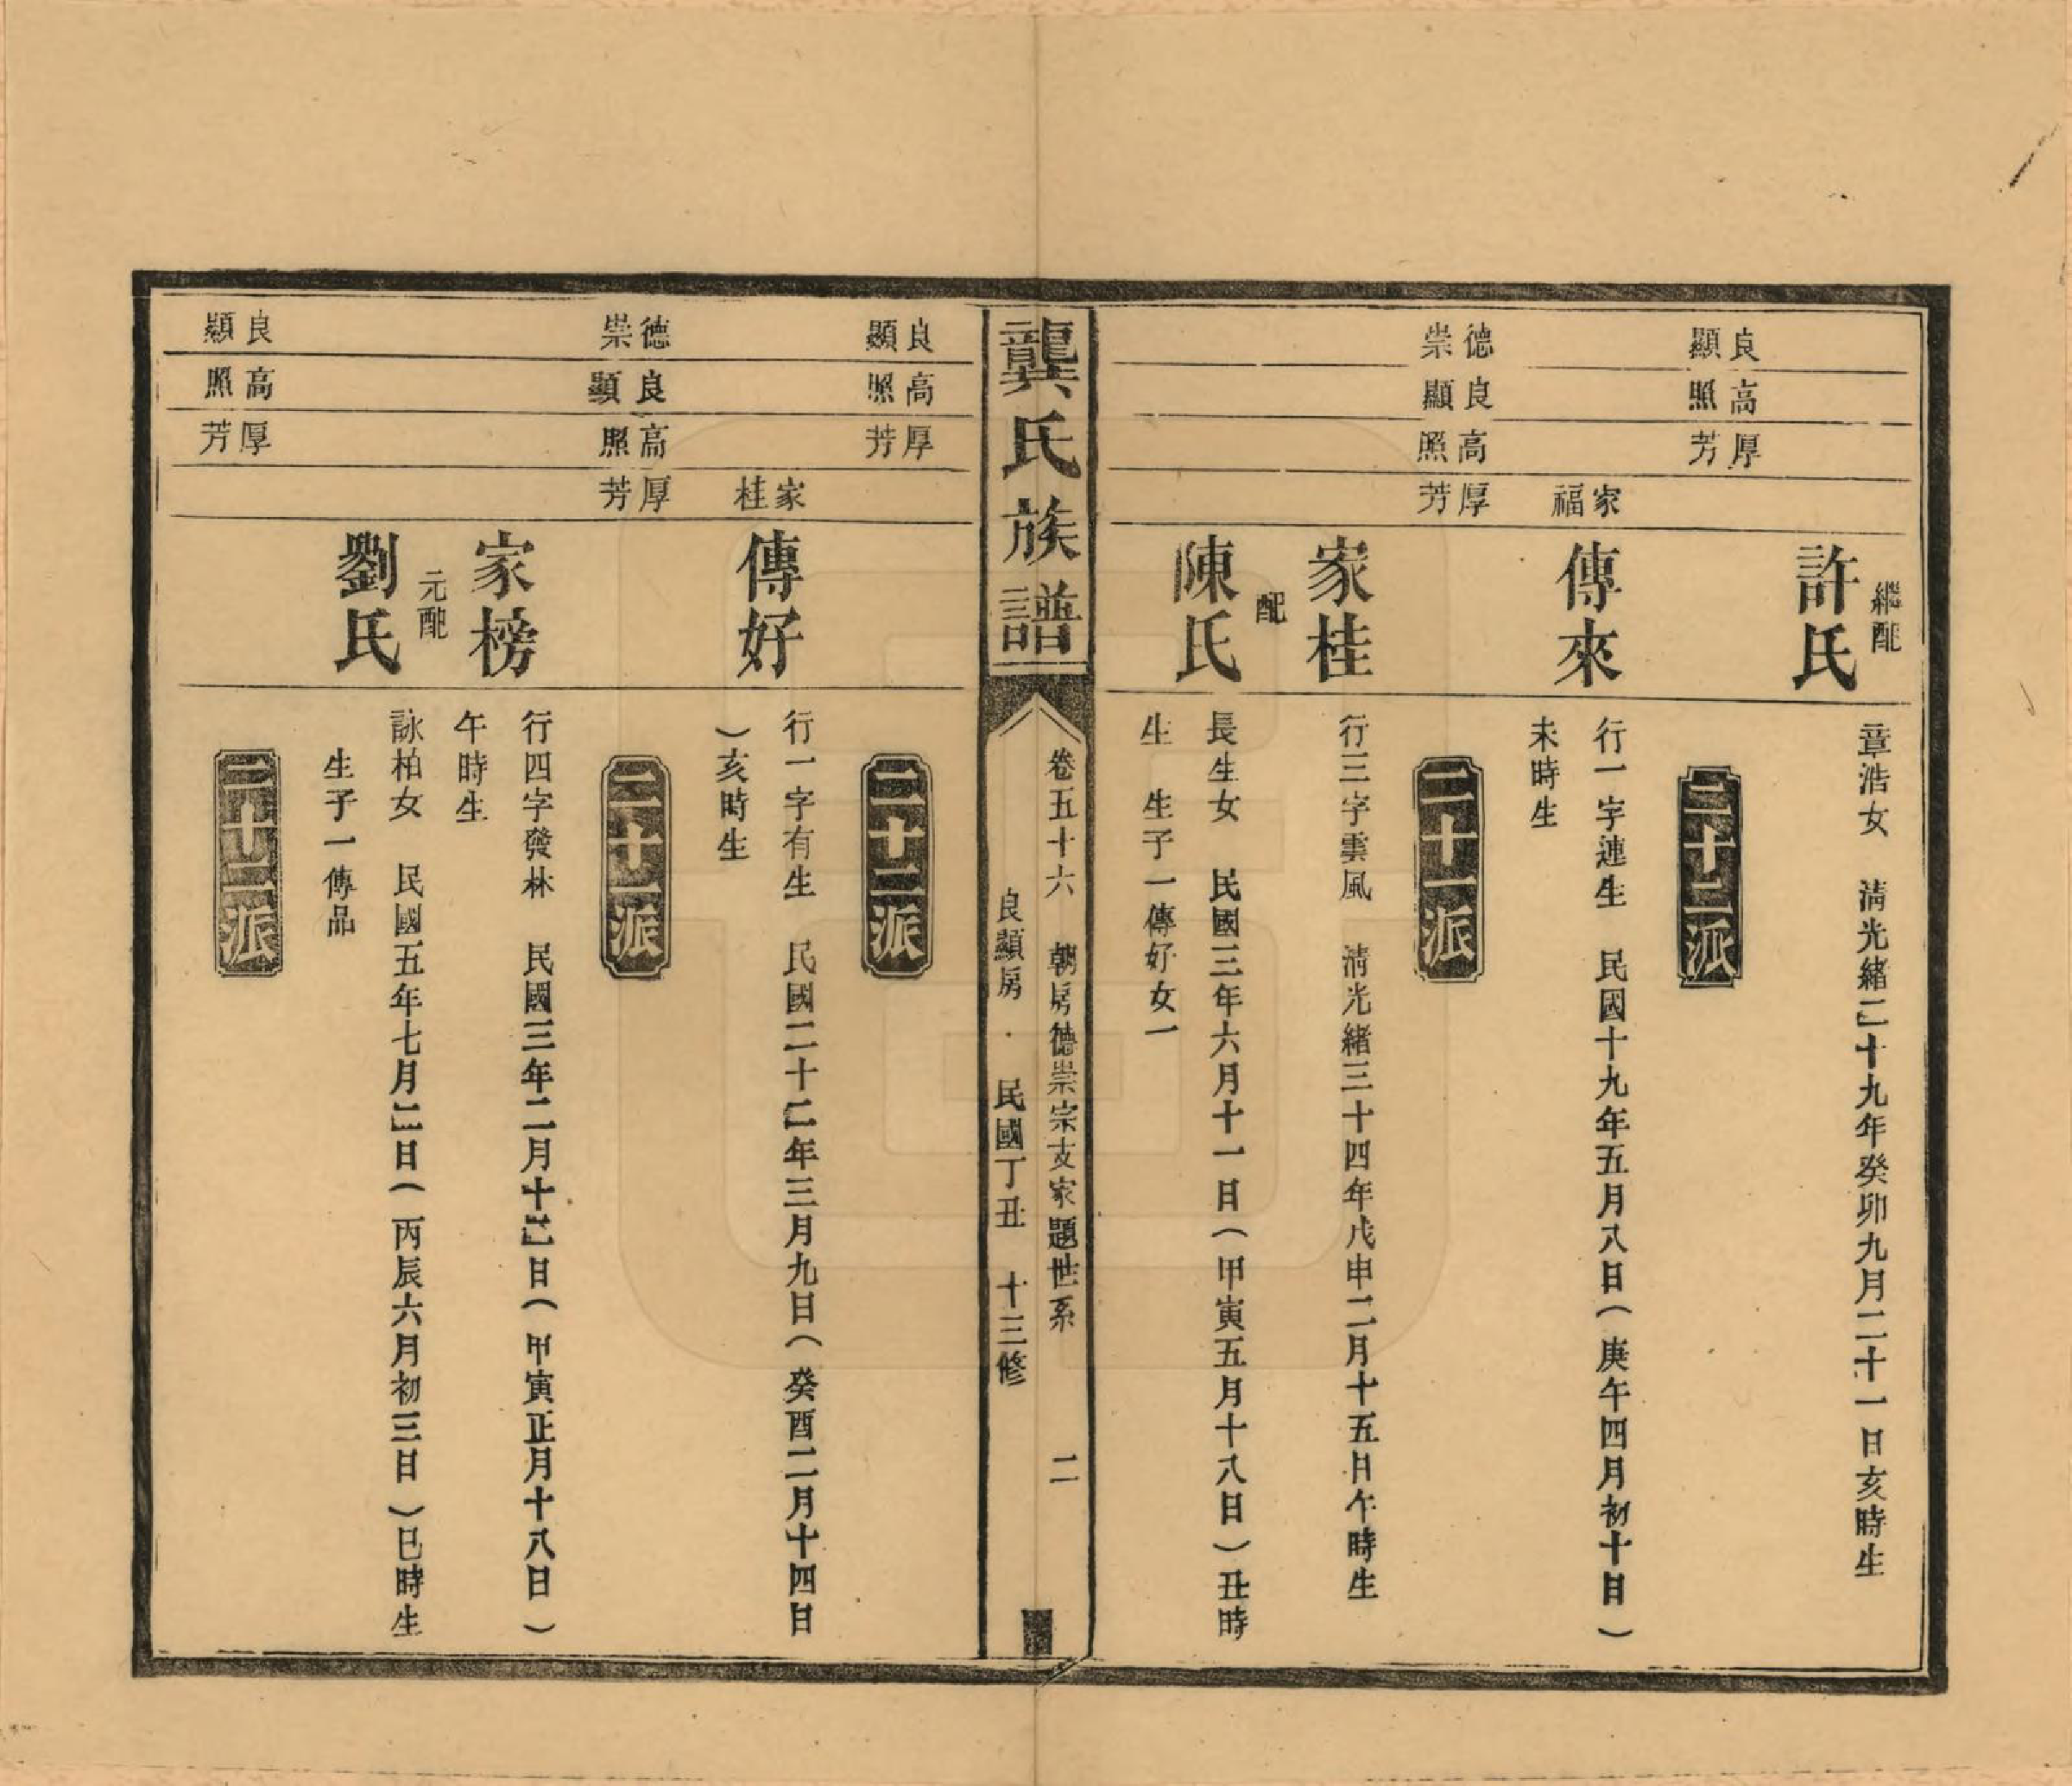 繼配
許氏
章浩女　清光緒二十九年癸卯九月二十一日亥時生
良顯
高照
厚芳
二十二派
家福
傳來
行一字漣生　民國十九年五月八日（庚午四月初十日）
未時生
德崇
良顯
高照
厚芳
二十一派
家桂
行三字雲風　清光緒三十四年戊申二月十五日午時生
配
陳氏
長生女　民國三年六月十一日（甲寅五月十八日）丑時
生　生子一傳好女一
龔氏族譜
卷五十六　朝房德崇宗支家題世系　二
良顯房．民國丁丑　十三修
良顯
高照
厚芳
二十二派
家桂
傳好
行一字有生　民國二十二年三月九日（癸酉二月十四日
）亥時生
德崇
良顯
高照
厚芳
二十一派
家榜
行四字發林　民國三年二月十二日（甲寅正月十八日）
午時生
元配
劉氏
詠柏女　民國五年七月二日（丙辰六月初三日）巳時生
生子一傳品
良顯
高照
厚芳
二十二派